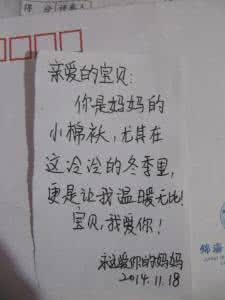 亲爱的宝贝:
你是妈妈的
小棉袄,尤其在
这冷冷的冬季里,
更是让我温暖无比!
宝贝,我爱你!
永远爱你的妈妈
2014.11.18